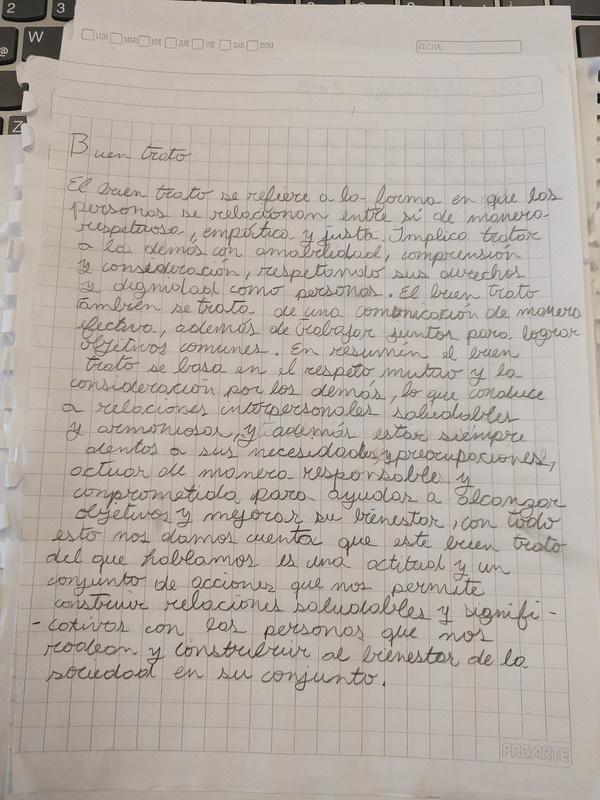 2 3
W
@
Z
LUN MAR MIE JUE VIE SAB DOM
FECHA:
Buen trato
El buen trato se refiere a la forma en que las
personas se relacionan entre sí de manera
respetuosa, empática y justa. Implica tratar
a la demás con amabilidad, comprensión
y consideración, respetando sus derechos
y dignidad como personas. El buen trato
también se trata de una comunicación de manera
efectiva, además de trabajar juntos para lograr
objetivos comunes. En resumén el buen
trato se basa en el respeto mutuo y la
consideración por los demás, lo que conduce
a relaciones interpersonales saludables
y armoniosas, y además estar siempre
atentos a sus necesidades y preocupaciones,
actuar de manera responsable y
comprometida para ayudar a alcanzar
objetivos y mejorar su bienestar, con todo
esto nos damos cuenta que este buen trato
del que hablamos es una actitud y un
conjunto de acciones que nos permite
construir relaciones saludables y signifi-
-cativas con las personas que nos
rodean y construir al bienestar de la
sociedad en su conjunto.
PROARTE